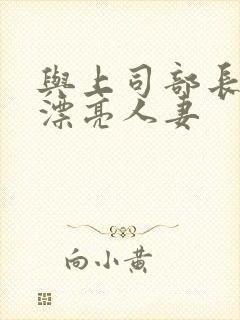 與上司部長
漂亮人妻
向小黄